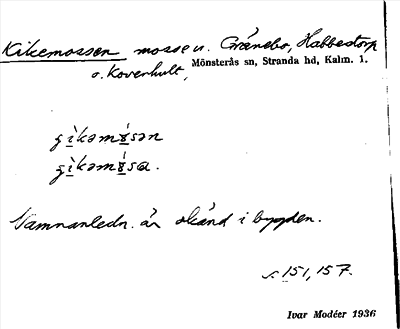 Kikemossen mosse n. Gränsbo, Habbestorp
o. Koverhult, Mönsterås sn, Stranda hd, Kalm. l.
Namnanledn. är okänd i bygden.
s. 151, 157.
Ivar Modéer 1936